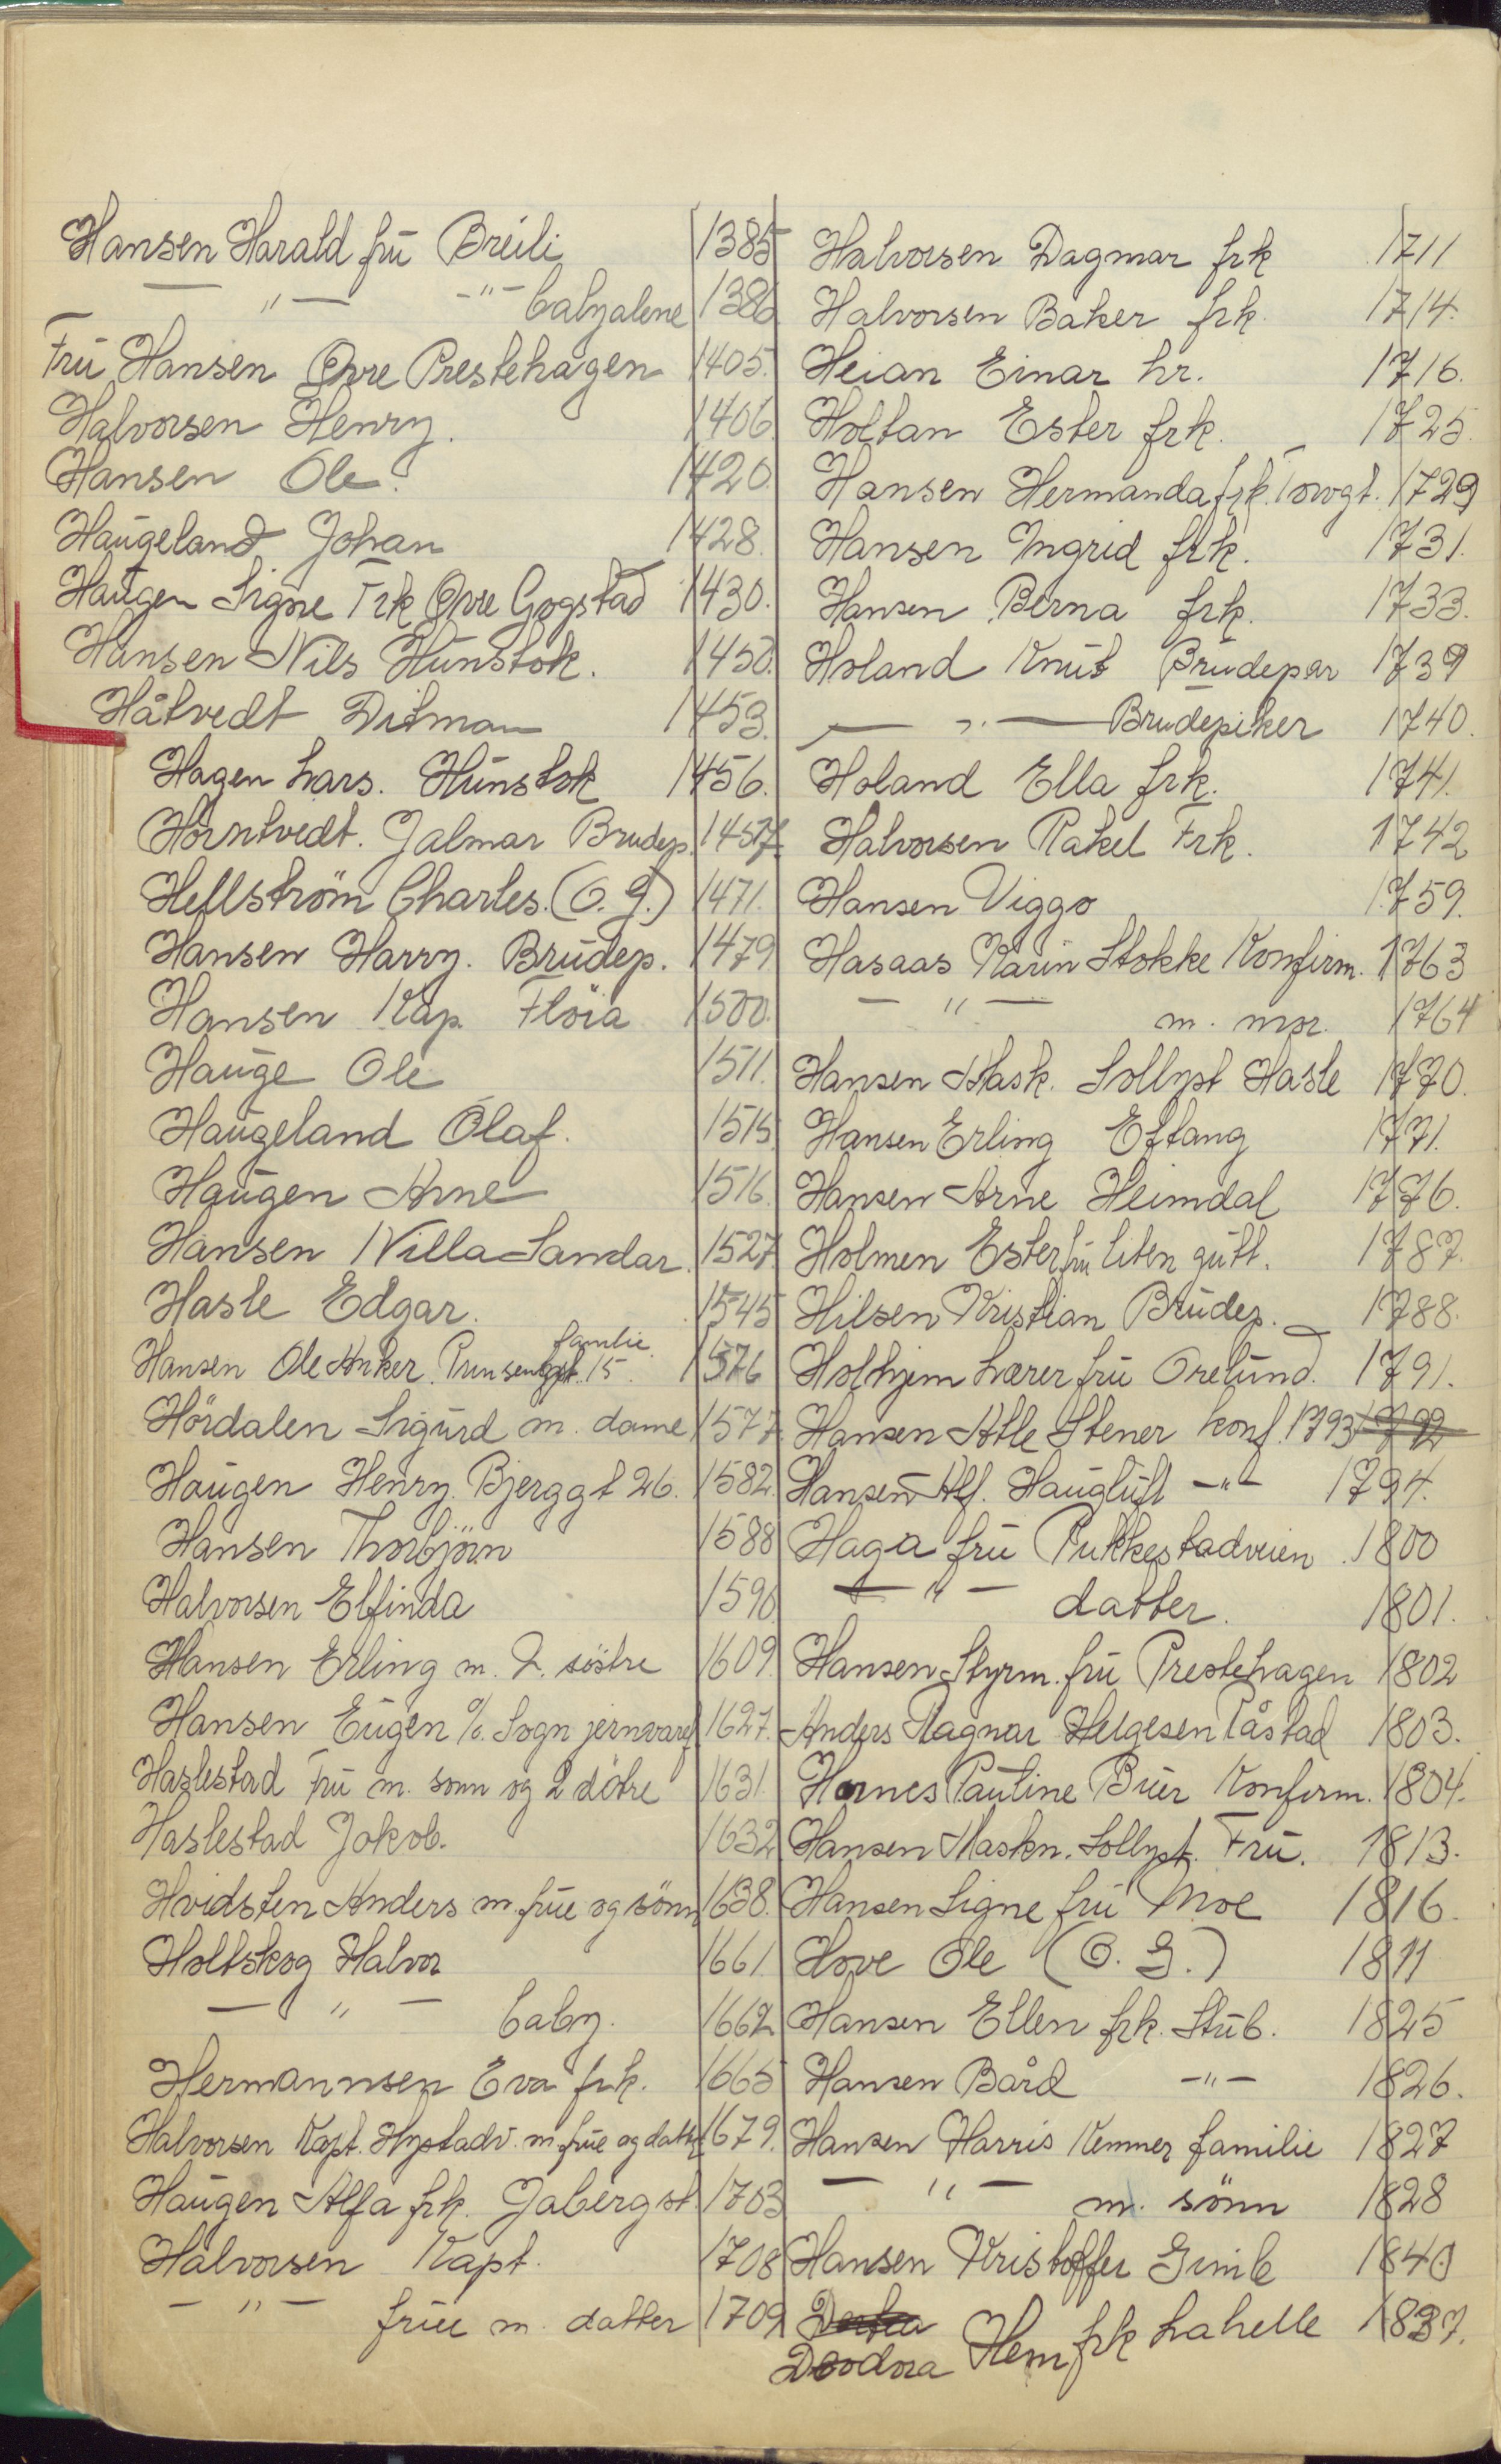 Hansen Harald frū Breili 1385
— " — -"- babyalene 1386
Frū Hansen Øvre Prestehagen 1405.
Halvorsen Henry. 1406
Hansen Ole. 1420
Haūgeland Johan 1428.
Haūgen Signe Frk Øvre Gogstad 1430.
Hansen Nils Hūnstok. 1450.
Håtvedt Ditman 1453.
Hagen Lars. Hūnstok 1456.
Hörntvedt. Jalmar Brudep. 1457
Hellström Charles. (O. G.) 1471.
Hansen Harry. Brūdep. 1479
Hansen Kap. Flöia 1500.
Haūge Ole 1511.
Haūgeland Olaf. 1515
Haūgen Arne 1516
Hansen Willa Sandar. 1527
Hasle Edgar. 1545
Hansen Ole Anker. Prinsensgt. 15. familie 1576
Hördalen Sigūrd m. dame 1577
Haūgen Henry. Bjerggt 26. 1582.
Hansen Thorbjörn 1588
Halvorsen Elfinda 1590
Hansen Erling m. 2. söstre 1609.
Hansen Eūgen %. Sogn jernvaref 1627.
Haslestad Frū m. sönn og 2 dötre 1631
Haslestad Jakob. 1632
Hvidsten Anders m. frue og sönn 1638.
Holtskog Halvor 1661.
— " — baby. 1662
Hermannsen Eva frk. 1665
Halvorsen Kapt. Hystadv. m. frue og datter 1679.
Haūgen Alfa frk. Jabergst. 1703
Halvorsen Kapt. 1708
— " — frue m. datter 1709
Halvorsen Dagmar frk 1711
Halvorsen Baker frk. 1714.
Heian Einar hr. 1716.
Holtan Ester frk. 1725.
Hansen Hermanda frk. Torvgt. 1729
Hansen Ingrid frk. 1731.
Hansen Berna frk. 1733.
Holand Knūt Brūdepar 1739
— " — Brudepiker 1740.
Holand Ella frk. 1741.
Halvorsen Rakel Frk. 1742
Hansen Viggo 1759.
Hasaas Karin Stokke Konfirm. 1763
— " — m. mor. 1764
Hansen Mask. Sollyst Hasle 1770.
Hansen Erling Eftang 1771.
Hansen Arne Heimdal 1776.
Holmen Ester frū liten gūtt. 1787.
Hilsen Kristian Brūdep. 1788.
Holthjem Lærer frū Orelūnd. 1791.
Hansen Atle Stener konf. 1793 1792
Hansen Alf. Haūglūft -"- 1794.
Haga frū Pukkestadveien. 1800
— " — datter. 1801.
Hansen Styrm. frū Prestehagen 1802
Anders Ragnar Helgesen Råstad 1803.
Hornes Paūline Būer Konfirm. 1804.
Hansen Maskn. Sollyst. Frū. 1813.
Hansen Signe frū Moe 1816.
Hove Ole (O. G.) 1811
Hansen Ellen frk. Stūb. 1825
Hansen Bård -"- 1826.
Hansen Harris Kemner familie 1827
— " — m. sönn 1828
Hansen Kristoffer Gimle 1840
Deodora Hem frk Lahelle 1837.